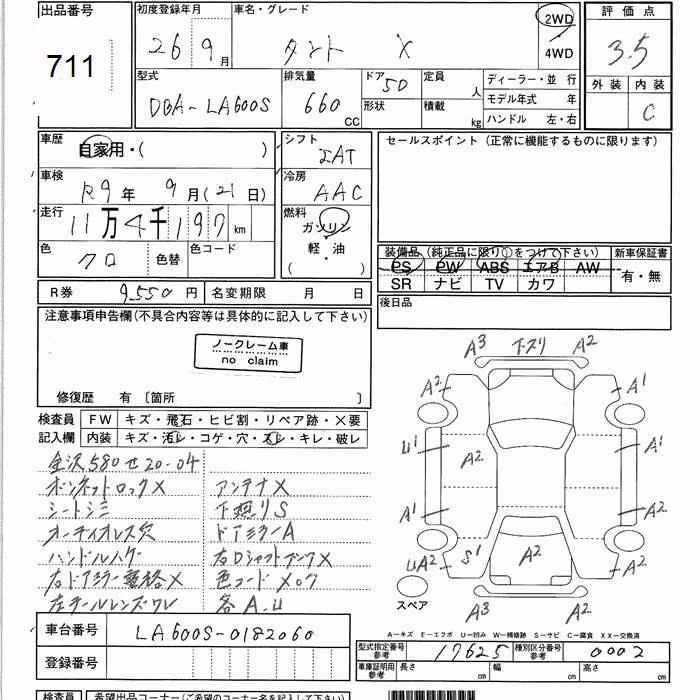 出品番号 初度登録年月 車名・グレード 2WD 評価点
711 26 9月 タント X 4WD 3.5
型式 排気量 ドア 50 定員 人 ディーラー・並 行 外装 内装
DBA-LA600S 660 CC 形状 積載 kg モデル年式 年 C
ハンドル 左・右
車歴 自家用・( ) シフト IAT セールスポイント (正常に機能するものに限ります)
車検 R9年 9月(21日) 冷房 AAC
走行 11万4千197km 燃料 ガソリン
軽・油
( )
色 クロ 色替 色コード
装備品 (純正品に限り○をつけて下さい) 新車保証書
PS PW ABS エアB AW 有・無
SR ナビ TV カワ
R券 9,550円 名変期限 月 日 後日品
注意事項申告欄(不具合内容等は具体的に記入して下さい)
ノークレーム車
no claim
修復歴 有 〔箇所 〕
検査員 FW キズ・飛石・ヒビ割・リペア跡・X要
記入欄 内装 キズ・汚レ・コゲ・穴・スレ・キレ・破レ
金沢580せ20-04
ボンネットロックX アンテナX
シートシミ 下廻りS
オーディオレス穴 ドアミラーA
ハンドルハゲ 右DシャフトブーツX
右ドアミラー電格X 色コードメロク
左テールレンズワレ 各A.U
A3 下スリ A2
A2 A1
U1 A2 A1
A1 A2
UA2 S1 A2 A2
A3 A2
スペア
A-キズ E-エクボ U-凹み W-補修跡 S-サビ C-腐食 XX-交換済
車台番号 LA600S-0182060
登録番号
型式指定番号 参考 17625 種別区分番号 参考 0002
車庫証明用 参考 長さ 幅 高さ
検査員 希望出品コーナー(ご希望のコーナー名を記入下さい)